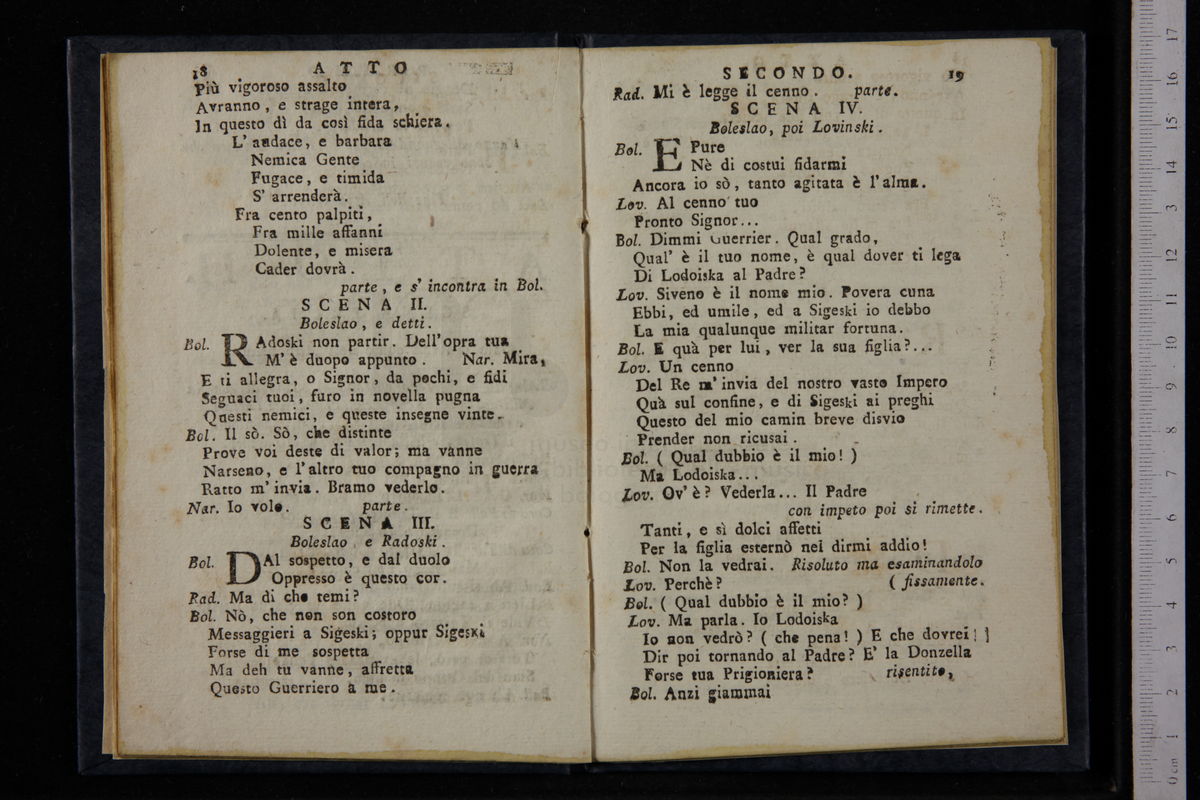 18 ATTO
Più vigoroso assalto
Avranno, e strage intera,
In questo dì da così fida schiera.
L' audace, e barbara
Nemica Gente
Fugace, e timida
S' arrenderà.
Fra cento palpiti,
Fra mille affanni
Dolente, e misera
Cader dovrà.
parte, e s' incontra in Bol.
SCENA II.
Boleslao, e detti.
Bol. RAdoski non partir. Dell'opra tua
M' è duopo appunto. Nar. Mira,
E ti allegra, o Signor, da pochi, e fidi
Seguaci tuoi, furo in novella pugna
Questi nemici, e queste insegne vinte.
Bol. Il sò. Sò, che distinte
Prove voi deste di valor; ma vanne
Narseno, e l'altro tuo compagno in guerra
Ratto m' invia. Bramo vederlo.
Nar. Io volo. parte.
SCENA III.
Boleslao e Radoski.
Bol. DAl sospetto, e dal duolo
Oppresso è questo cor.
Rad. Ma di che temi?
Bol. Nò, che non son costoro
Messaggieri a Sigeski; oppur Sigeski
Forse di me sospetta
Ma deh tu vanne, affretta
Questo Guerriero a me.
SECONDO. 19
Rad. Mi è legge il cenno. parte.
SCENA IV.
Boleslao, poi Lovinski.
Bol. E Pure
Nè di costui fidarmi
Ancora io sò, tanto agitata è l'alma.
Lov. Al cenno tuo
Pronto Signor...
Bol. Dimmi Guerrier. Qual grado,
Qual' è il tuo nome, è qual dover ti lega
Di Lodoiska al Padre?
Lov. Siveno è il nome mio. Povera cuna
Ebbi, ed umile, ed a Sigeski io debbo
La mia qualunque militar fortuna.
Bol. E quà per lui, ver la sua figlia?...
Lov. Un cenno
Del Re m' invia del nostro vasto Impero
Quà sul confine, e di Sigeski ai preghi
Questo del mio camin breve disvio
Prender non ricusai.
Bol. ( Qual dubbio è il mio! )
Ma Lodoiska...
Lov. Ov' è? Vederla... Il Padre
con impeto poi si rimette.
Tanti, e sì dolci affetti
Per la figlia esternò nel dirmi addio!
Bol. Non la vedrai. Risoluto ma esaminandolo
Lov. Perchè? ( fissamente.
Bol. ( Qual dubbio è il mio? )
Lov. Ma parla. Io Lodoiska
Io non vedrò? ( che pena! ) E che dovrei!
Dir poi tornando al Padre? E' la Donzella
Forse tua Prigioniera? risentito,
Bol. Anzi giammai